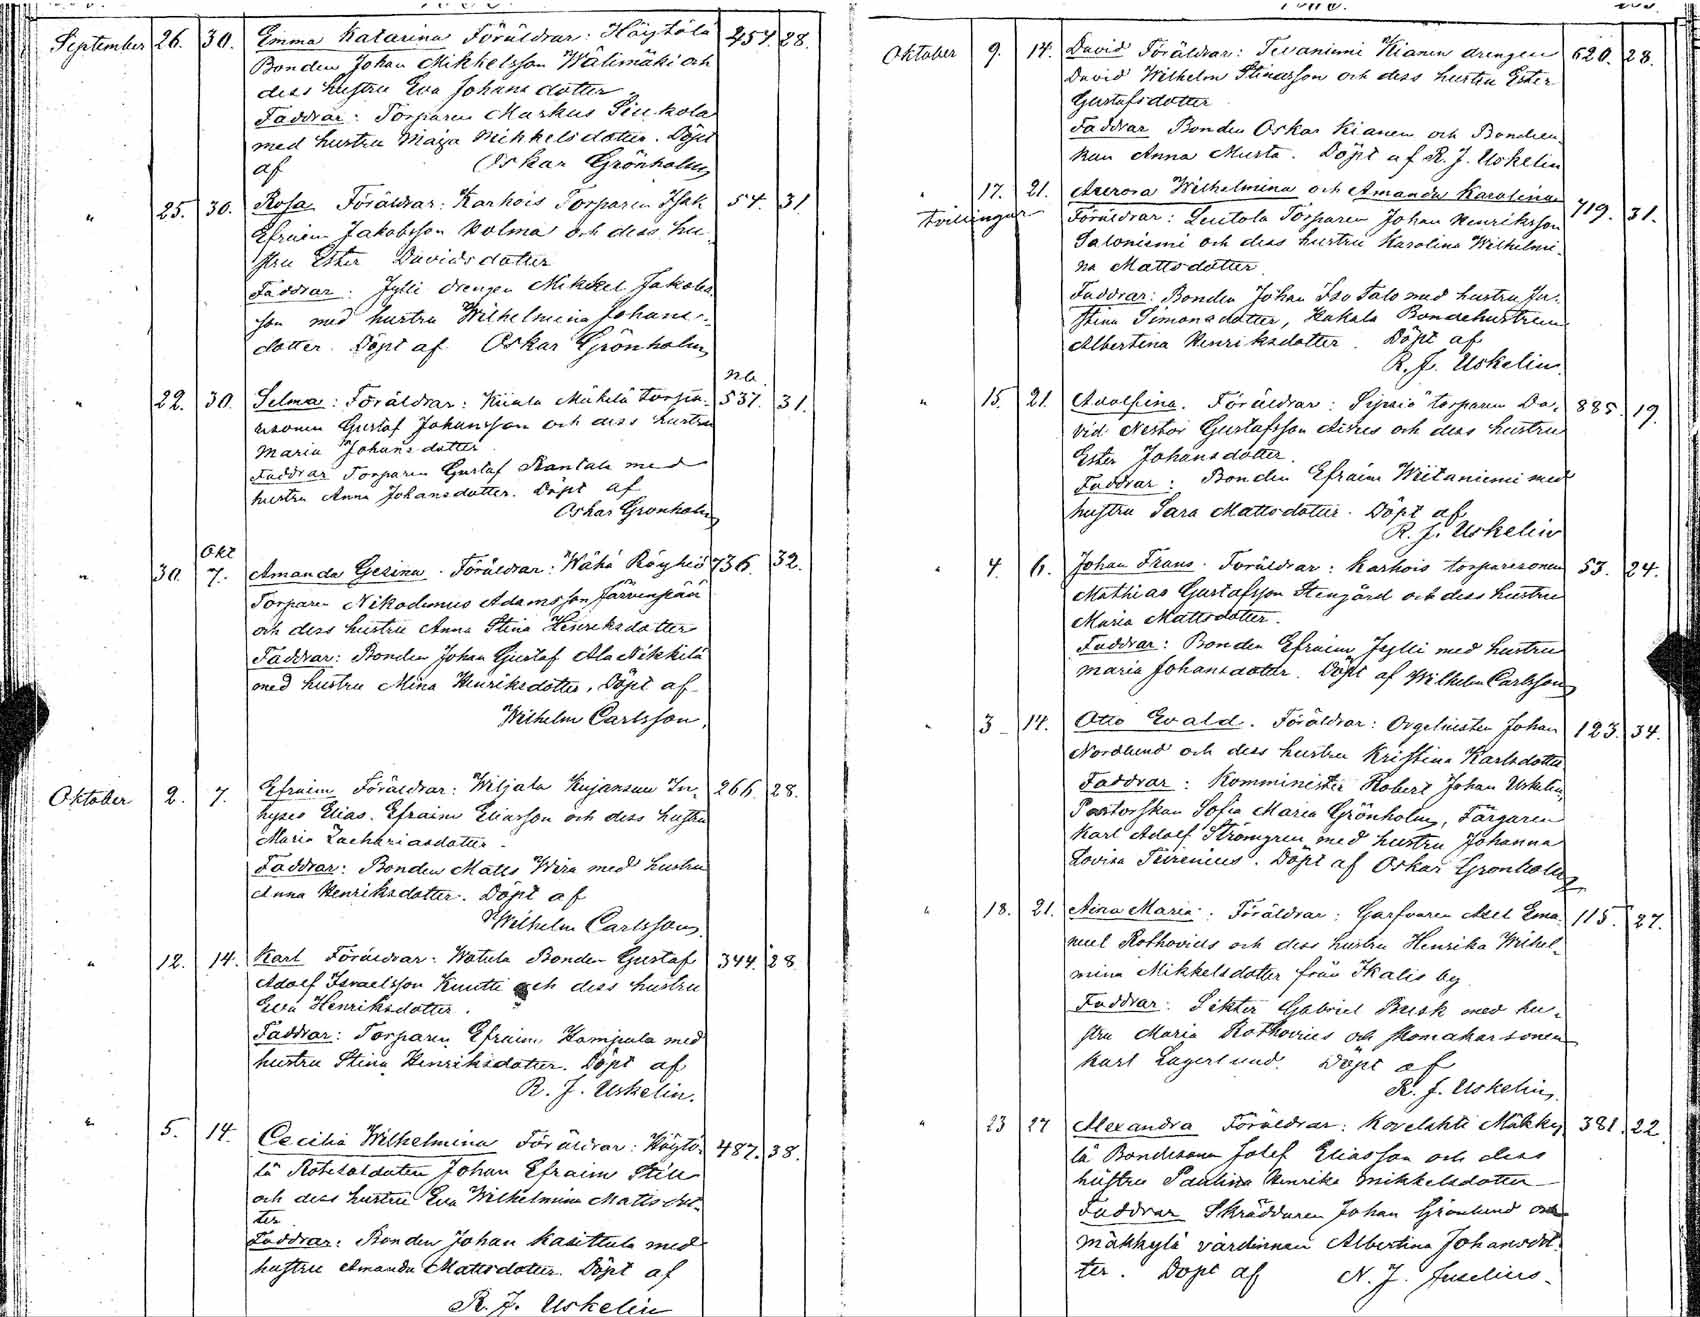 September 26. 30. Emma Katarina Föräldrar: Höytölä 454. 28.
Bonden Johan Mikkelsson Wälimäki och
dess hustru Eva Johansdotter
Faddrar: Torparen Markus Siukola
med hustru Maija Mikkelsdotter. Döpt
af Oskar Grönholm
" 25. 30. Rosa Föräldrar: Karhois Torparen Isak 54. 31
Efraim Jakobsson Holma och dess hu-
stru Ester Davidsdotter
Faddrar: Jylli drengen Mikkel Jakobs-
son med hustru Wilhelmina Johans-
dotter. Döpt af Oskar Grönholm
nb.
" 22. 30. Selma: Föräldrar: Kiiala Mäkelä torpa- 537. 31.
resonen Gustaf Johansson och dess hustru
Maria Johansdotter
Faddrar Torparen Gustaf Rantala med
hustru Anna Johansdotter. Döpt af
Oskar Grönholm
Okt
" 30. 7. Amanda Gesina. Föräldrar: Wähä Röyhiö 736. 32.
Torparen Nikodemus Adamsson Järvenpää
och dess hustru Anna Stina Henriksdotter
Faddrar: Bonden Johan Gustaf Ala Nikkilä
med hustru Mina Henriksdotter. Döpt af
Wilhelm Carlsson.
Oktober 2. 7. Efraim Föräldrar: Wiljala Kujansuu In- 266. 28.
hyses Elias. Efraim Eliasson och dess hustru
Maria Zachariasdotter.
Faddrar: Bonden Matts Wira med hustru
Anna Henriksdotter. Döpt af
Wilhelm Carlsson.
" 12. 14. Karl Föräldrar: Watula Bonden Gustaf 344. 28
Adolf Israelsson Knutti och dess hustru
Eva Henriksdotter.
Faddrar: Torparen Efraim Kampula med
hustru Stina Henriksdotter. Döpt af
R. J. Uskelin.
" 5. 14. Cecilia Wilhelmina Föräldrar: Höytö- 487. 38.
lä Rotesoldaten Johan Efraim Still
och dess hustru Eva Wilhelmina Mattsdot-
ter
Faddrar: Bonden Johan Kasittula med
hustru Amanda Mattsdotter. Döpt af
R. J. Uskelin
Oktober 9. 14. David Föräldrar: Tevaniemi Kianen drengen 620. 28.
David Wilhelm Stinasson och dess hustru Ester
Gustafsdotter
Faddrar Bonden Oskar Kianen och Bondens
Anna Musta. Döpt af R. J. Uskelin
" 17. 21. Aurora Wilhelmina och Amanda Karolina 719. 31.
Tvillingar Föräldrar: Leutola Torparen Johan Henriksson
Saloniemi och dess hustru Karolina Wilhelmi-
na Mattsdotter.
Faddrar: Bonden Johan Iso Talo med hustru Ju-
stina Simonsdotter, Hakala Bondehustrun
Albertina Henriksdotter. Döpt af
R. J. Uskelin.
" 15. 21. Adolfina. Föräldrar: Sipsiö torparen Da- 885. 19.
vid Nestor Gustafsson och dess hustru
Ester Johansdotter.
Faddrar: Bonden Efraim Wiitaniemi med
hustru Sara Mattsdotter. Döpt af
R. J. Uskelin
" 4. 6. Johan Frans. Föräldrar: Karhois torparesonen 53. 24.
Mathias Gustafsson Stengård och dess hustru
Maria Mattsdotter.
Faddrar: Bonden Efraim Jylli med hustru
Maria Johansdotter. Döpt af Wilhelm Carlsson
" 3 14. Otto Evald. Föräldrar: Orgelnisten Johan 123. 34.
Nordlund och dess hustru Kristina Karlsdotter
Faddrar: Komminister Robert Johan Uskelin,
Pastorskan Sofia Maria Grönholm, Färgaren
Karl Adolf Strömgren med hustru Johanna
Lovisa Teirenius. Döpt af Oskar Grönholm
" 18. 21. Aina Maria: Föräldrar: Garfvaren Axel Ema- 115. 27.
nuel Rothovius och dess hustru Henrika Wilhel-
mina Mikkelsdotter från Ikalis by
Faddrar: Gabriel Busk med hu-
stru Maria Rothovius och skomakarsonen
Karl Lagerlund. Döpt af
R. J. Uskelin.
" 23 27 Alexandra Föräldrar: Kovelahti Mäkky- 381. 22
lä Bondesonen Josef Eliasson och dess
hustru Paulina Henrika Mikkelsdotter
Faddrar Skräddaren Johan Grönlund och
Mäkkylä värdinnan Albertina Johansdot-
ter. Döpt af N. J. Juselius.